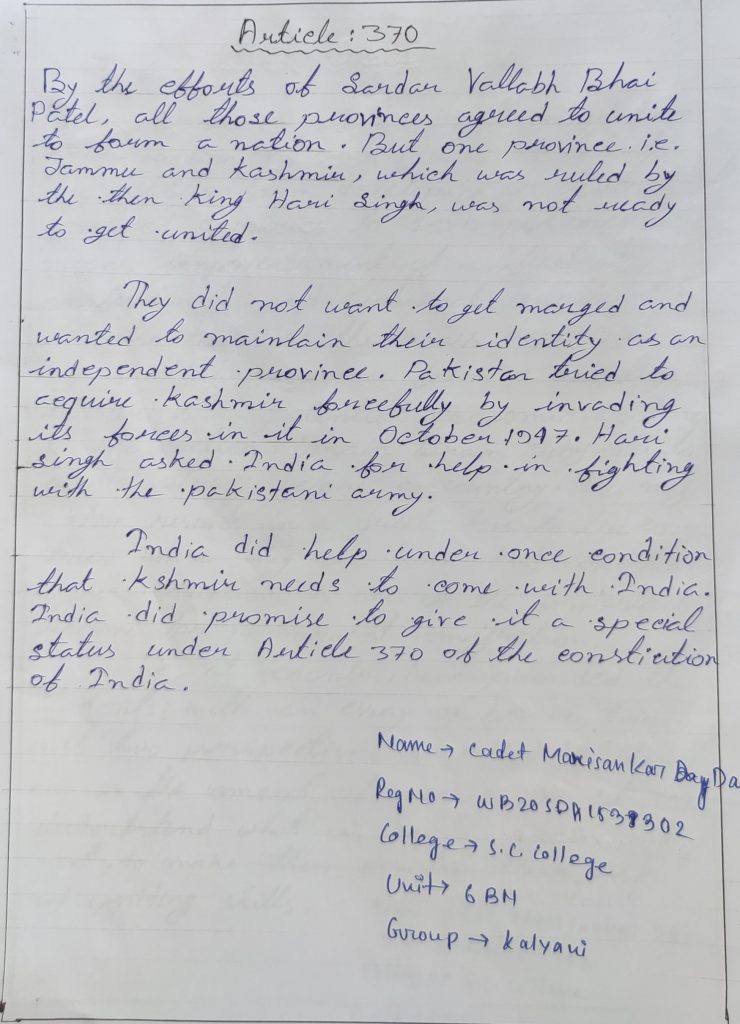 Article : 370
By the efforts of Sardar Vallabh Bhai
Patel, all those provinces agreed to unite
to form a nation. But one province. i.e.
Jammu and Kashmir, which was ruled by
the then King Hari Singh, was not ready
to get united.
They did not want to get marged and
wanted to maintain their identity as an
independent province. Pakistan tried to
acquire Kashmir forcefully by invading
its forces in it in October 1947. Hari
Singh asked India for help in fighting
with the pakistani army.
India did help under once condition
that kshmir needs to come with India.
India did promise to give it a special
status under Article 370 of the constiution
of India.
Name → Cadet Manisankar
Reg No →
College → S.C. College
Unit → 6 BN
Group → Kalyani